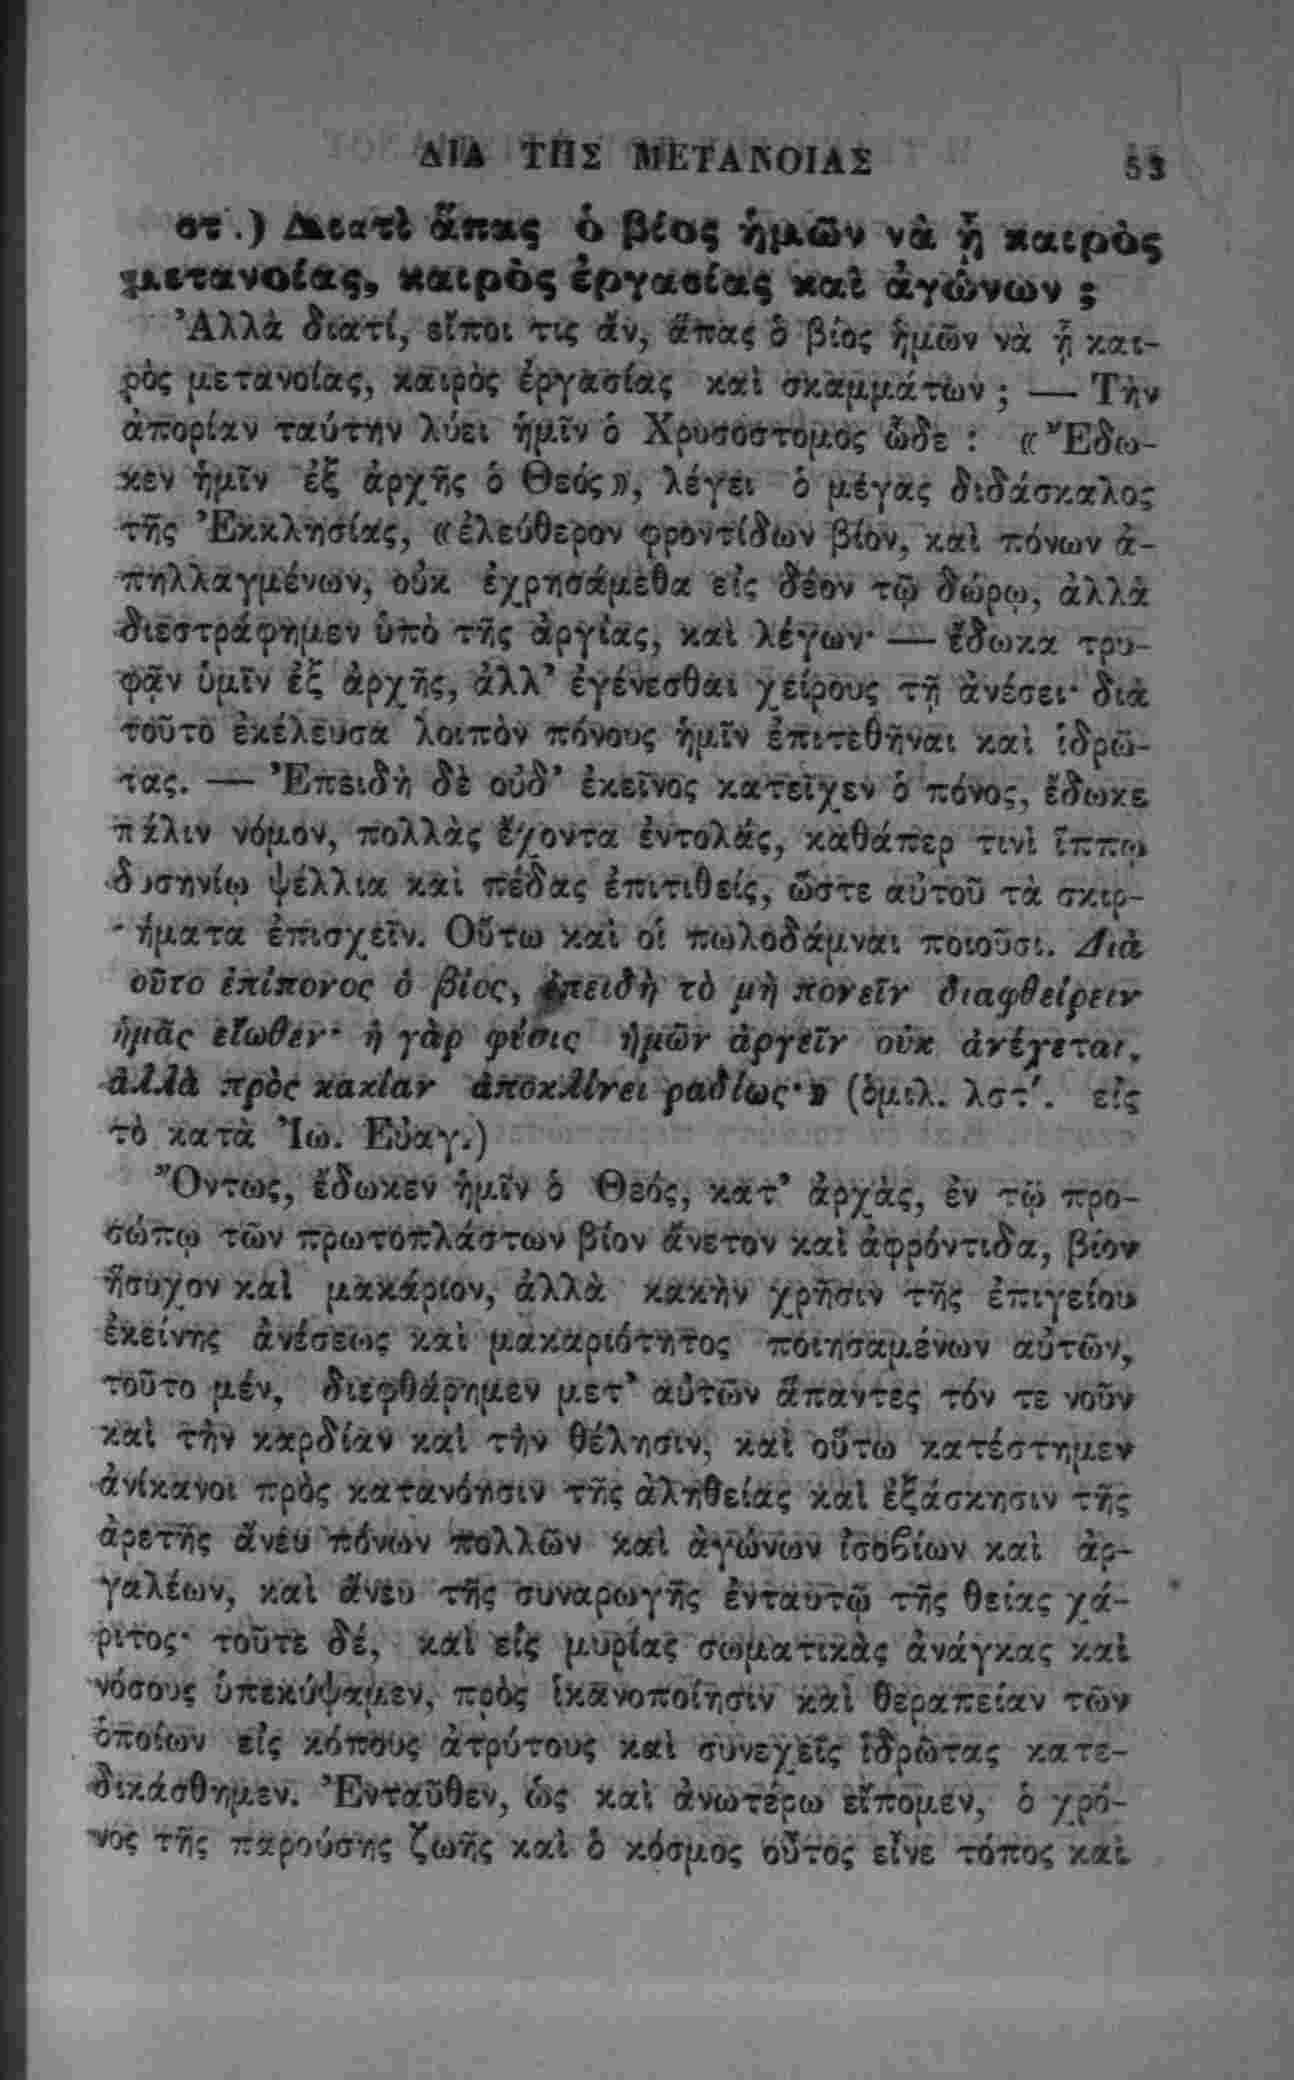 ΔΙΑ ΤΗΣ ΜΕΤΑΝΟΙΑΣ 53
στ΄.) Διατὶ ἅπας ὁ βίος ἡμῶν νὰ ᾖ καιρὸς
μετανοίας, καιρὸς ἐργασίας καὶ ἀγώνων ;
Ἀλλὰ διατί, εἴποι τις ἄν, ἅπας ὁ βίος ἡμῶν νὰ ᾖ και-
ρὸς μετανοίας, καιρὸς ἐργασίας καὶ σκαμμάτων ; — Τὴν
ἀπορίαν ταύτην λύει ἡμῖν ὁ Χρυσόστομος ὧδε : « Ἔδω-
κεν ἡμῖν ἐξ ἀρχῆς ὁ Θεός», λέγει ὁ μέγας διδάσκαλος
τῆς Ἐκκλησίας, «ἐλεύθερον φροντίδων βίον, καὶ πόνων ἀ-
πηλλαγμένων, οὐκ ἐχρησάμεθα εἰς δέον τῷ δώρῳ, ἀλλὰ
διεστράφημεν ὑπὸ τῆς ἀργίας, καὶ λέγων· — ἔδωκα τρυ-
φᾷν ὑμῖν ἐξ ἀρχῆς, ἀλλ’ ἐγένεσθαι χείρους τῇ ἀνέσει· διὰ
τοῦτο ἐκέλευσα λοιπὸν πόνους ἡμῖν ἐπιτεθῆναι καὶ ἱδρῶ-
τας. — Ἐπειδὴ δὲ οὐδ’ ἐκεῖνος κατεῖχεν ὁ πόνος, ἔδωκε
πάλιν νόμον, πολλὰς ἔχοντα ἐντολάς, καθάπερ τινὶ ἵππῳ
δυσηνίῳ ψέλλια καὶ πέδας ἐπιτιθείς, ὥστε αὐτοῦ τὰ σκιρ-
ήματα ἐπισχεῖν. Οὕτω καὶ οἱ πωλοδάμναι ποιοῦσι. Διὰ
οῦτο ἐπίπονος ὁ βίος, ἐπειδὴ τὸ μὴ πονεῖν διαφθείρειν
ἡμᾶς εἴωθεν· ἡ γὰρ φύσις ἡμῶν ἀργεῖν οὐκ ἀνέχεται,
ἀλλὰ πρὸς κακίαν ἀποκλίνει ραδίως·» (ὁμιλ. λστ΄. εἰς
τὸ κατὰ Ἰω. Εὐαγ.)
Ὄντως, ἔδωκεν ἡμῖν ὁ Θεός, κατ’ ἀρχὰς, ἐν τῷ προ-
σώπῳ τῶν πρωτοπλάστων βίον ἄνετον καὶ ἀφρόντιδα, βίον
ἥσυχον καὶ μακάριον, ἀλλὰ κακὴν χρῆσιν τῆς ἐπιγείου
ἐκείνης ἀνέσεως καὶ μακαριότητος ποιησαμένων αὐτῶν,
τοῦτο μέν, διεφθάρημεν μετ’ αὐτῶν ἅπαντες τόν τε νοῦν
καὶ τὴν καρδίαν καὶ τὴν θέλησιν, καὶ οὕτω κατέστημεν
ἀνίκανοι πρὸς κατανόησιν τῆς ἀληθείας καὶ ἐξάσκησιν τῆς
ἀρετῆς ἄνευ πόνων πολλῶν καὶ ἀγώνων ἰσοβίων καὶ ἀρ-
γαλέων, καὶ ἄνευ τῆς συναρωγῆς ἐνταυτῷ τῆς θείας χά-
ριτος· τοῦτε δέ, καὶ εἰς μυρίας σωματικὰς ἀνάγκας καὶ
νόσους ὑπεκύψαμεν, πρὸς ἱκανοποίησιν καὶ θεραπείαν τῶν
ὁποίων εἰς κόπους ἀτρύτους καὶ συνεχεῖς ἱδρῶτας κατε-
δικάσθημεν. Ἐνταῦθεν, ὡς καὶ ἀνωτέρω εἴπομεν, ὁ χρό-
νος τῆς παρούσης ζωῆς καὶ ὁ κόσμος οὗτος εἶνε τόπος καὶ